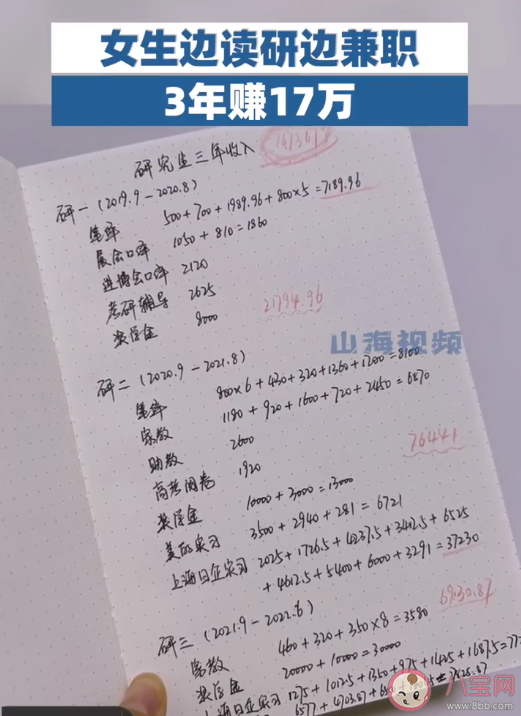 女生边读研边兼职
3年赚17万
研究生三年收入
研一 (2019.9-2020.8)
笔译 500+700+1989.96+800×5=7189.96
展会口译 1050+810=1860
进博会口译 2120
考研辅导 2625
奖学金 8000
21794.96
山海视频
研二 (2020.9-2021.8)
笔译 800×6+430+320+1360+1200=8100
家教 1180+920+1600+720+2450=6870
助教 2600
高考阅卷 1920
76441
奖学金 10000+3000=13000
美的实习 3500+2940+281=6721
上海日企实习 2025+1726.5+4237.5+3412.5+6525
+4612.5+5400+6000+3291=37230
69130.87
研三 (2021.9-2022.6)
家教 460+320+350×8=3580
奖学金 20000+10000=30000
上海日企实习
八宝网
www.8bb.com